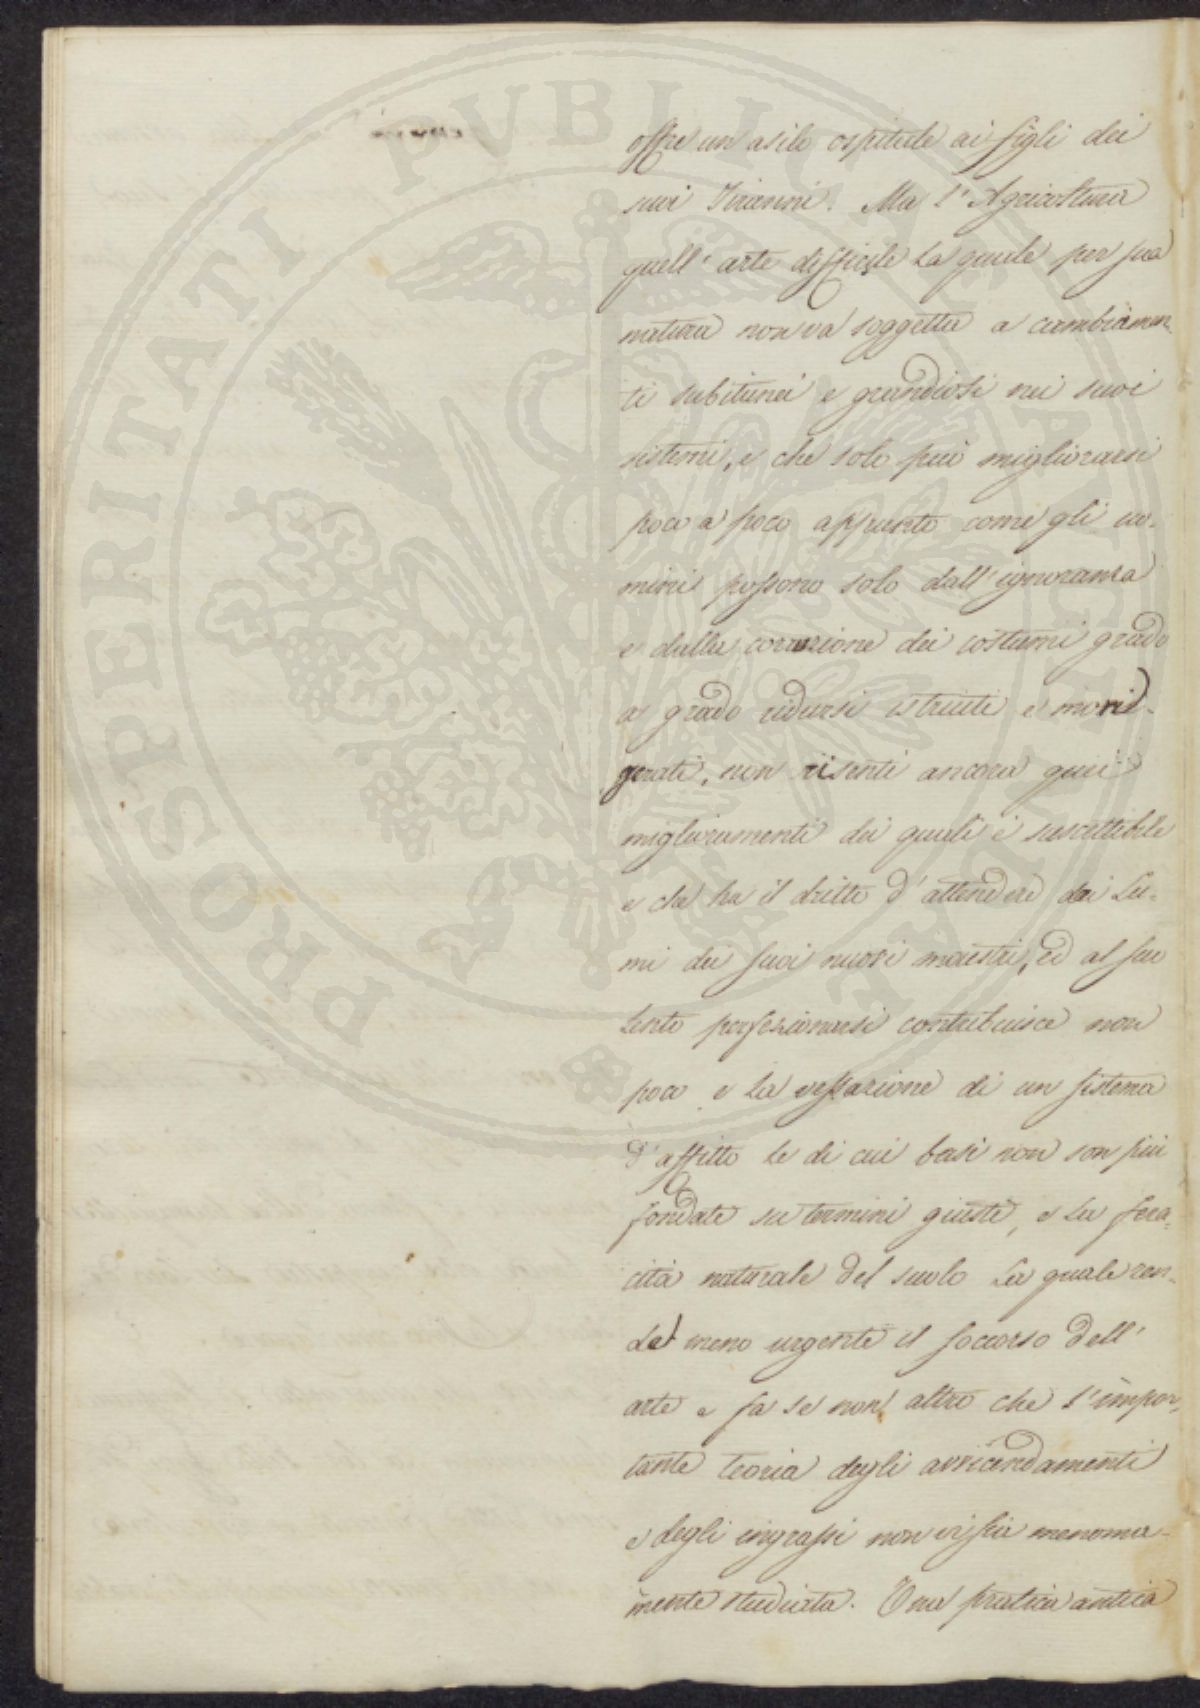 offre un asile ospitale ai figli dei
suoi Tiranni. Ma l'Agricoltura
quell'arte difficile la quale per sua
natura non va soggetta a cambiamen-
ti subitanei e grandiosi nei suoi
sistemi, e che solo può migliorarsi
poco a poco appunto come gli uo-
mini possono solo dall'ignoranza
e dalla corruzione dei costumi grado
a grado ridursi istruiti e mori-
gerati, non risentì ancora quei
miglioramenti dei quali è suscettibile
e che ha il dritto d'attendere dai Lu-
mi dei suoi nuovi maestri, ed al suo
lento perfezionarsi contribuisce non
poco e la vessazione di un sistema
d'affitto le di cui basi non son più
fondate su termini giusti, e la fera-
cità naturale del suolo la quale ren-
de meno urgente il soccorso dell'
arte e fa se non altro che l'impor-
tante teoria degli avvicendamenti
e degli ingrassi non vi sia menoma-
mente studiata. Una pratica antica
PROSPERITATI PUBLICAE AUGENDAE